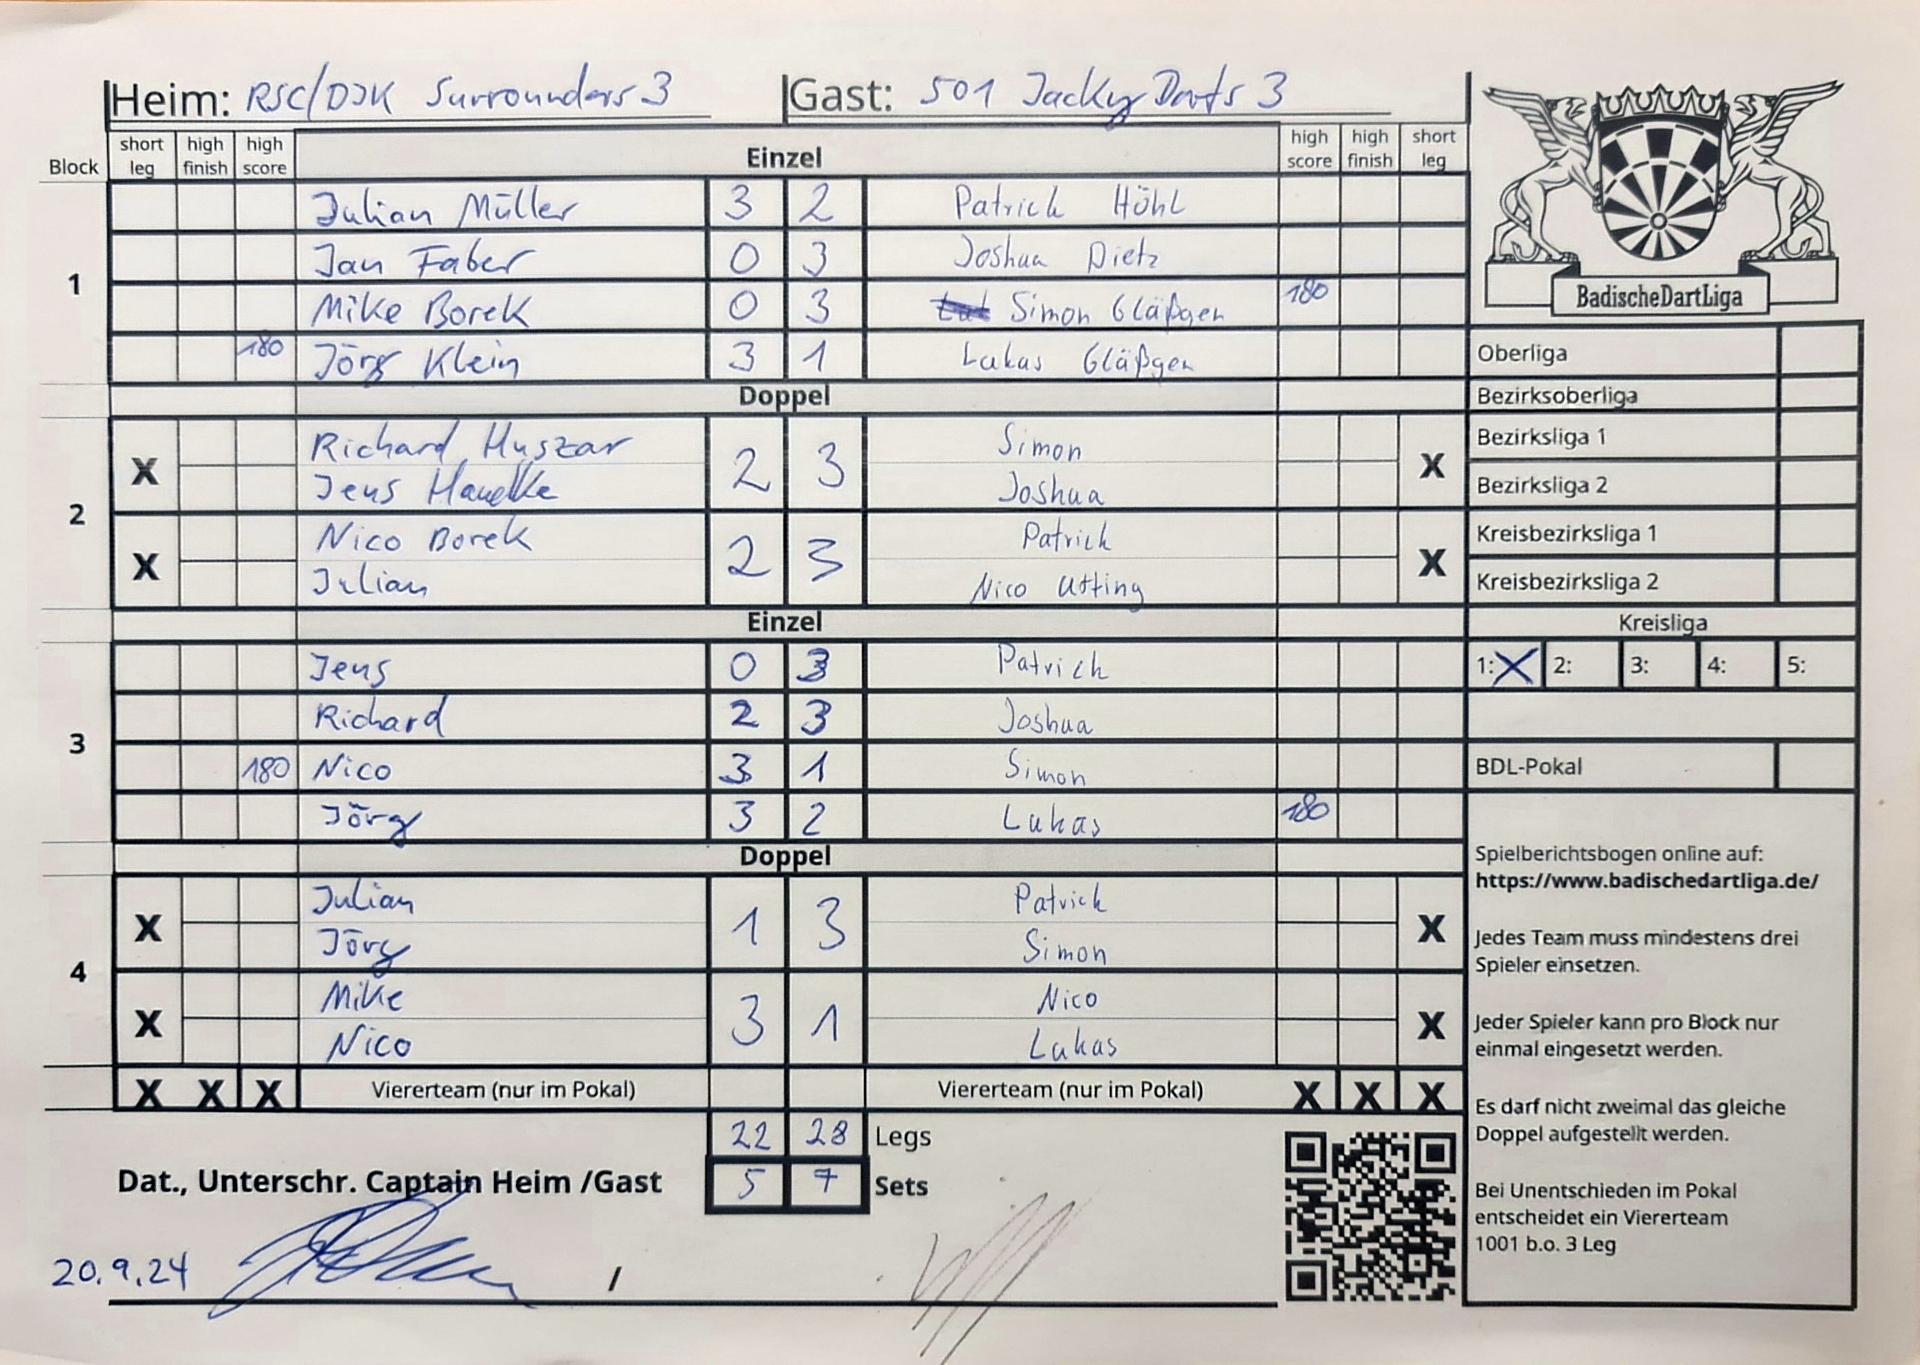 Heim: RSC/DJK Surrounders 3 Gast: 501 Jacky Darts 3
Block short leg high finish high score Einzel high score high finish short leg
1
Julian Müller 3 2 Patrick Höhl
Jan Faber 0 3 Joshua Dietz
Mike Borek 0 3 Simon Gläßgen 180
180 Jörg Klein 3 1 Lukas Gläßgen
Doppel
2
X Richard Huszar 2 3 Simon X
Jens Handke Joshua
X Nico Borek 2 3 Patrick X
Julian Nico Utting
Einzel
3
Jens 0 3 Patrick
Richard 2 3 Joshua
180 Nico 3 1 Simon
Jörg 3 2 Lukas 180
Doppel
4
X Julian 1 3 Patrick X
Jörg Simon
X Mike 3 1 Nico X
Nico Lukas
X X X Viererteam (nur im Pokal) Viererteam (nur im Pokal) X X X
22 28 Legs
Dat., Unterschr. Captain Heim /Gast 5 7 Sets
20.9.24 /
BadischeDartLiga
Oberliga
Bezirksoberliga
Bezirksliga 1
Bezirksliga 2
Kreisbezirksliga 1
Kreisbezirksliga 2
Kreisliga
1: X 2: 3: 4: 5:
BDL-Pokal
Spielberichtsbogen online auf:
https://www.badischedartliga.de/
Jedes Team muss mindestens drei
Spieler einsetzen.
Jeder Spieler kann pro Block nur
einmal eingesetzt werden.
Es darf nicht zweimal das gleiche
Doppel aufgestellt werden.
Bei Unentschieden im Pokal
entscheidet ein Viererteam
1001 b.o. 3 Leg